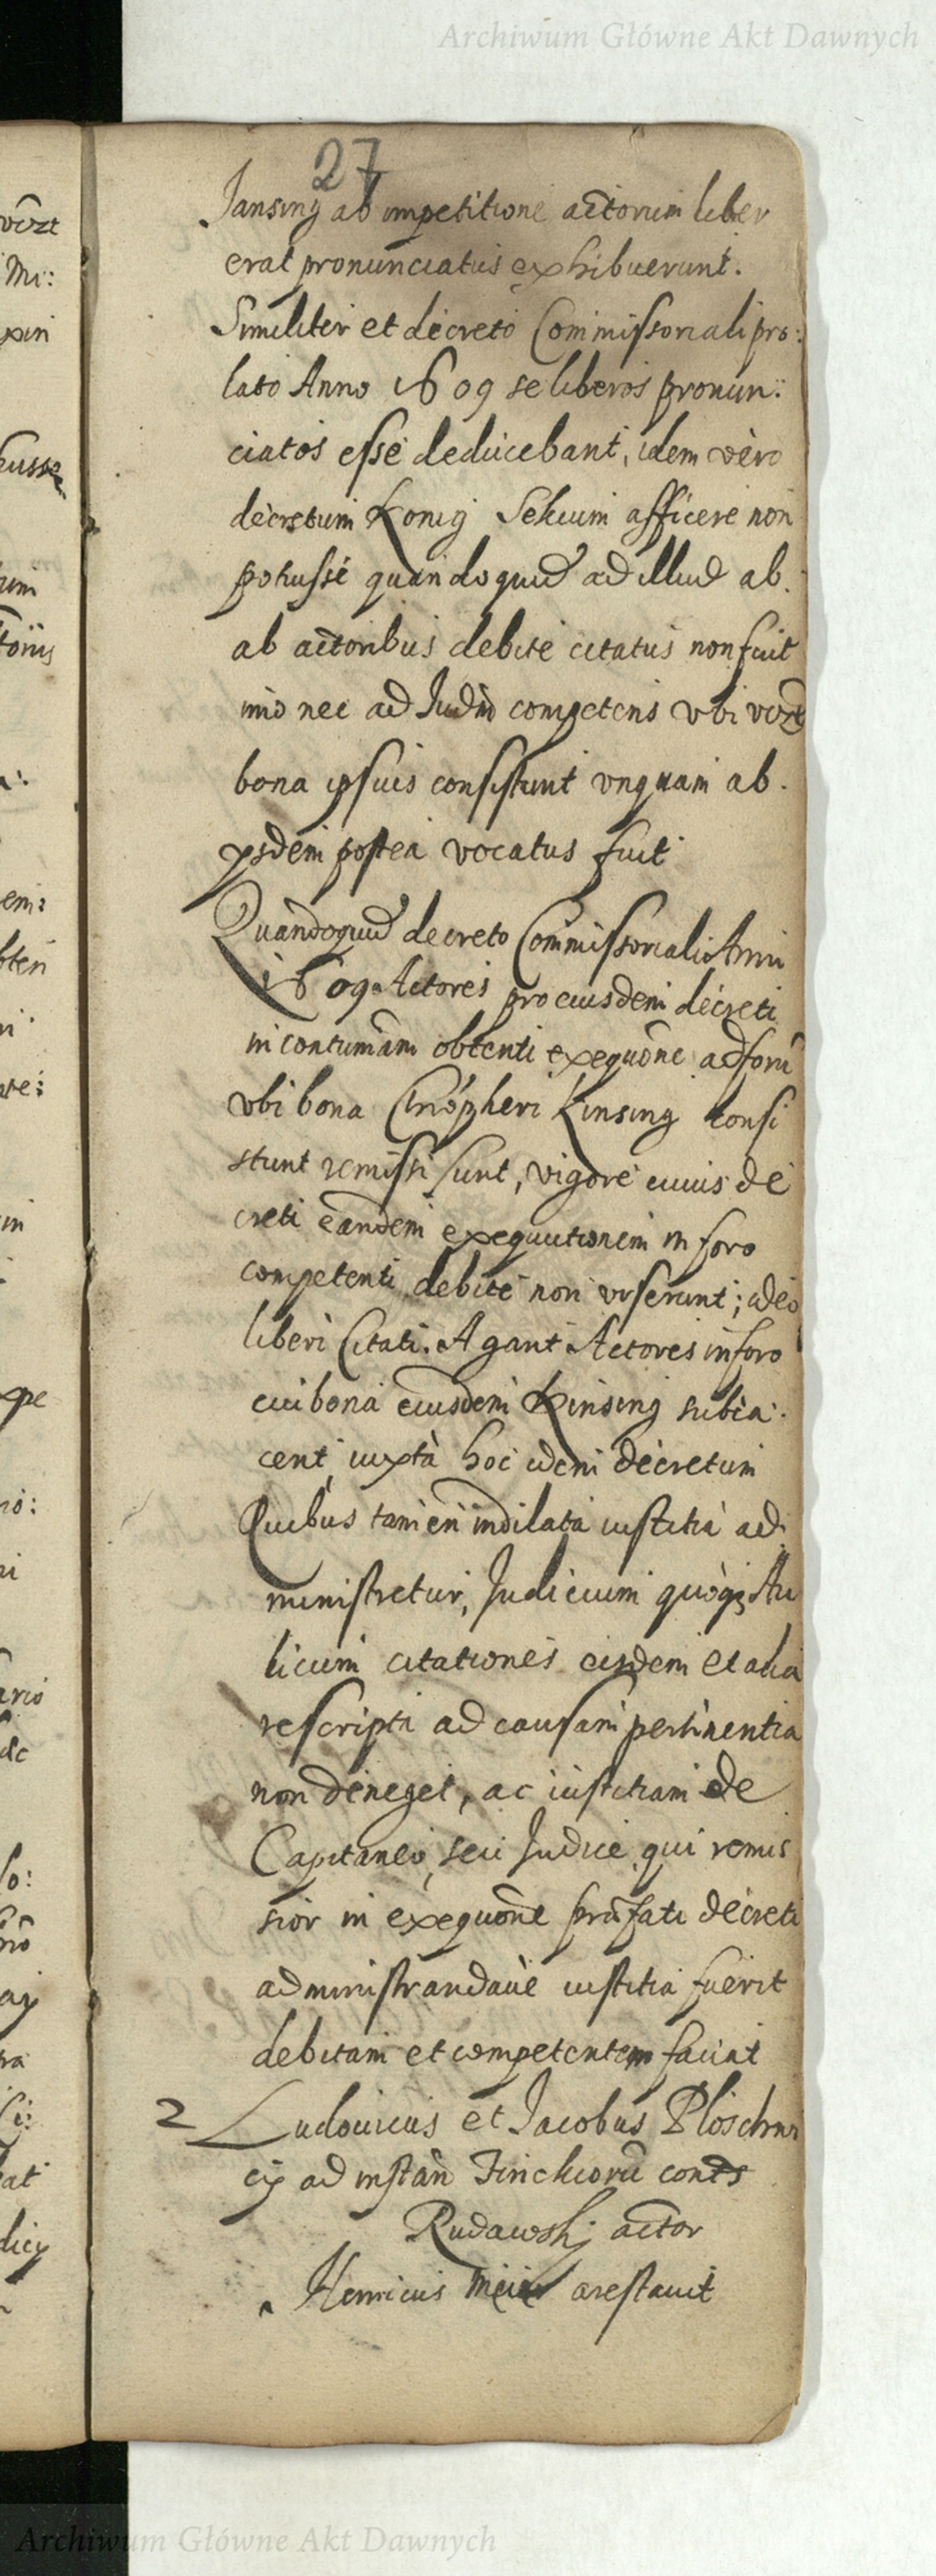 Archiwum Główne Akt Dawnych
27
Jansing ab impetitione actorum liber
erat pronunciatus exhibuerunt.
Similiter et decreto Commissoriali pro:
lato Anno 1609 se liberos pronun:
ciatos esse deducebant, idem vero
decretum Konig Selium afficere non
potuisse quandoquid ad illud ab.
ab actoribus debite citatus non fuit
imo nec ad Judm competens vbi vozt
bona ipsius consistunt vnquam ab.
ysdem postea vocatus fuit
Quandoquid decreto Commissoriali Anni
1609 Actores pro eiusdem decreti
in contumam obtenti exequone ad foru
vbi bona Chrophori Kinsing consi
stunt remissi sunt, vigore cuius de
creti eandem exequutionem in foro
competenti debite non vrserunt; ideo
liberi Citati. Agant Actores in foro
cui bona eiusdem Kinsing subia:
cent, iuxta hoc idem decretum
Quibus tamen indilata iustitia ad:
ministretur, Judicium quoqz Au
licum citationes eisdem et alia
rescripta ad causam pertinentia
non deneget, ac iustitiam de
Capitaneo, seu Judice, qui remis
sior in exequone praefati decreti
administrandave iustitia fuerit
debitam et competentem faciat
2 Ludouicus et Jacobus Ploschni
cy ad instan Finckioru conts
Rudawskj actor
Henricus Meier arestauit
Archiwum Główne Akt Dawnych